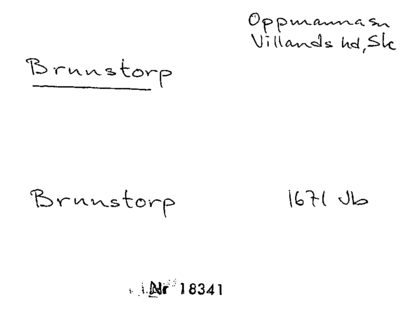 Oppmanna sn
Villands hd, Sk
Brunnstorp
Brunnstorp 1671 Jb
Nr 18341